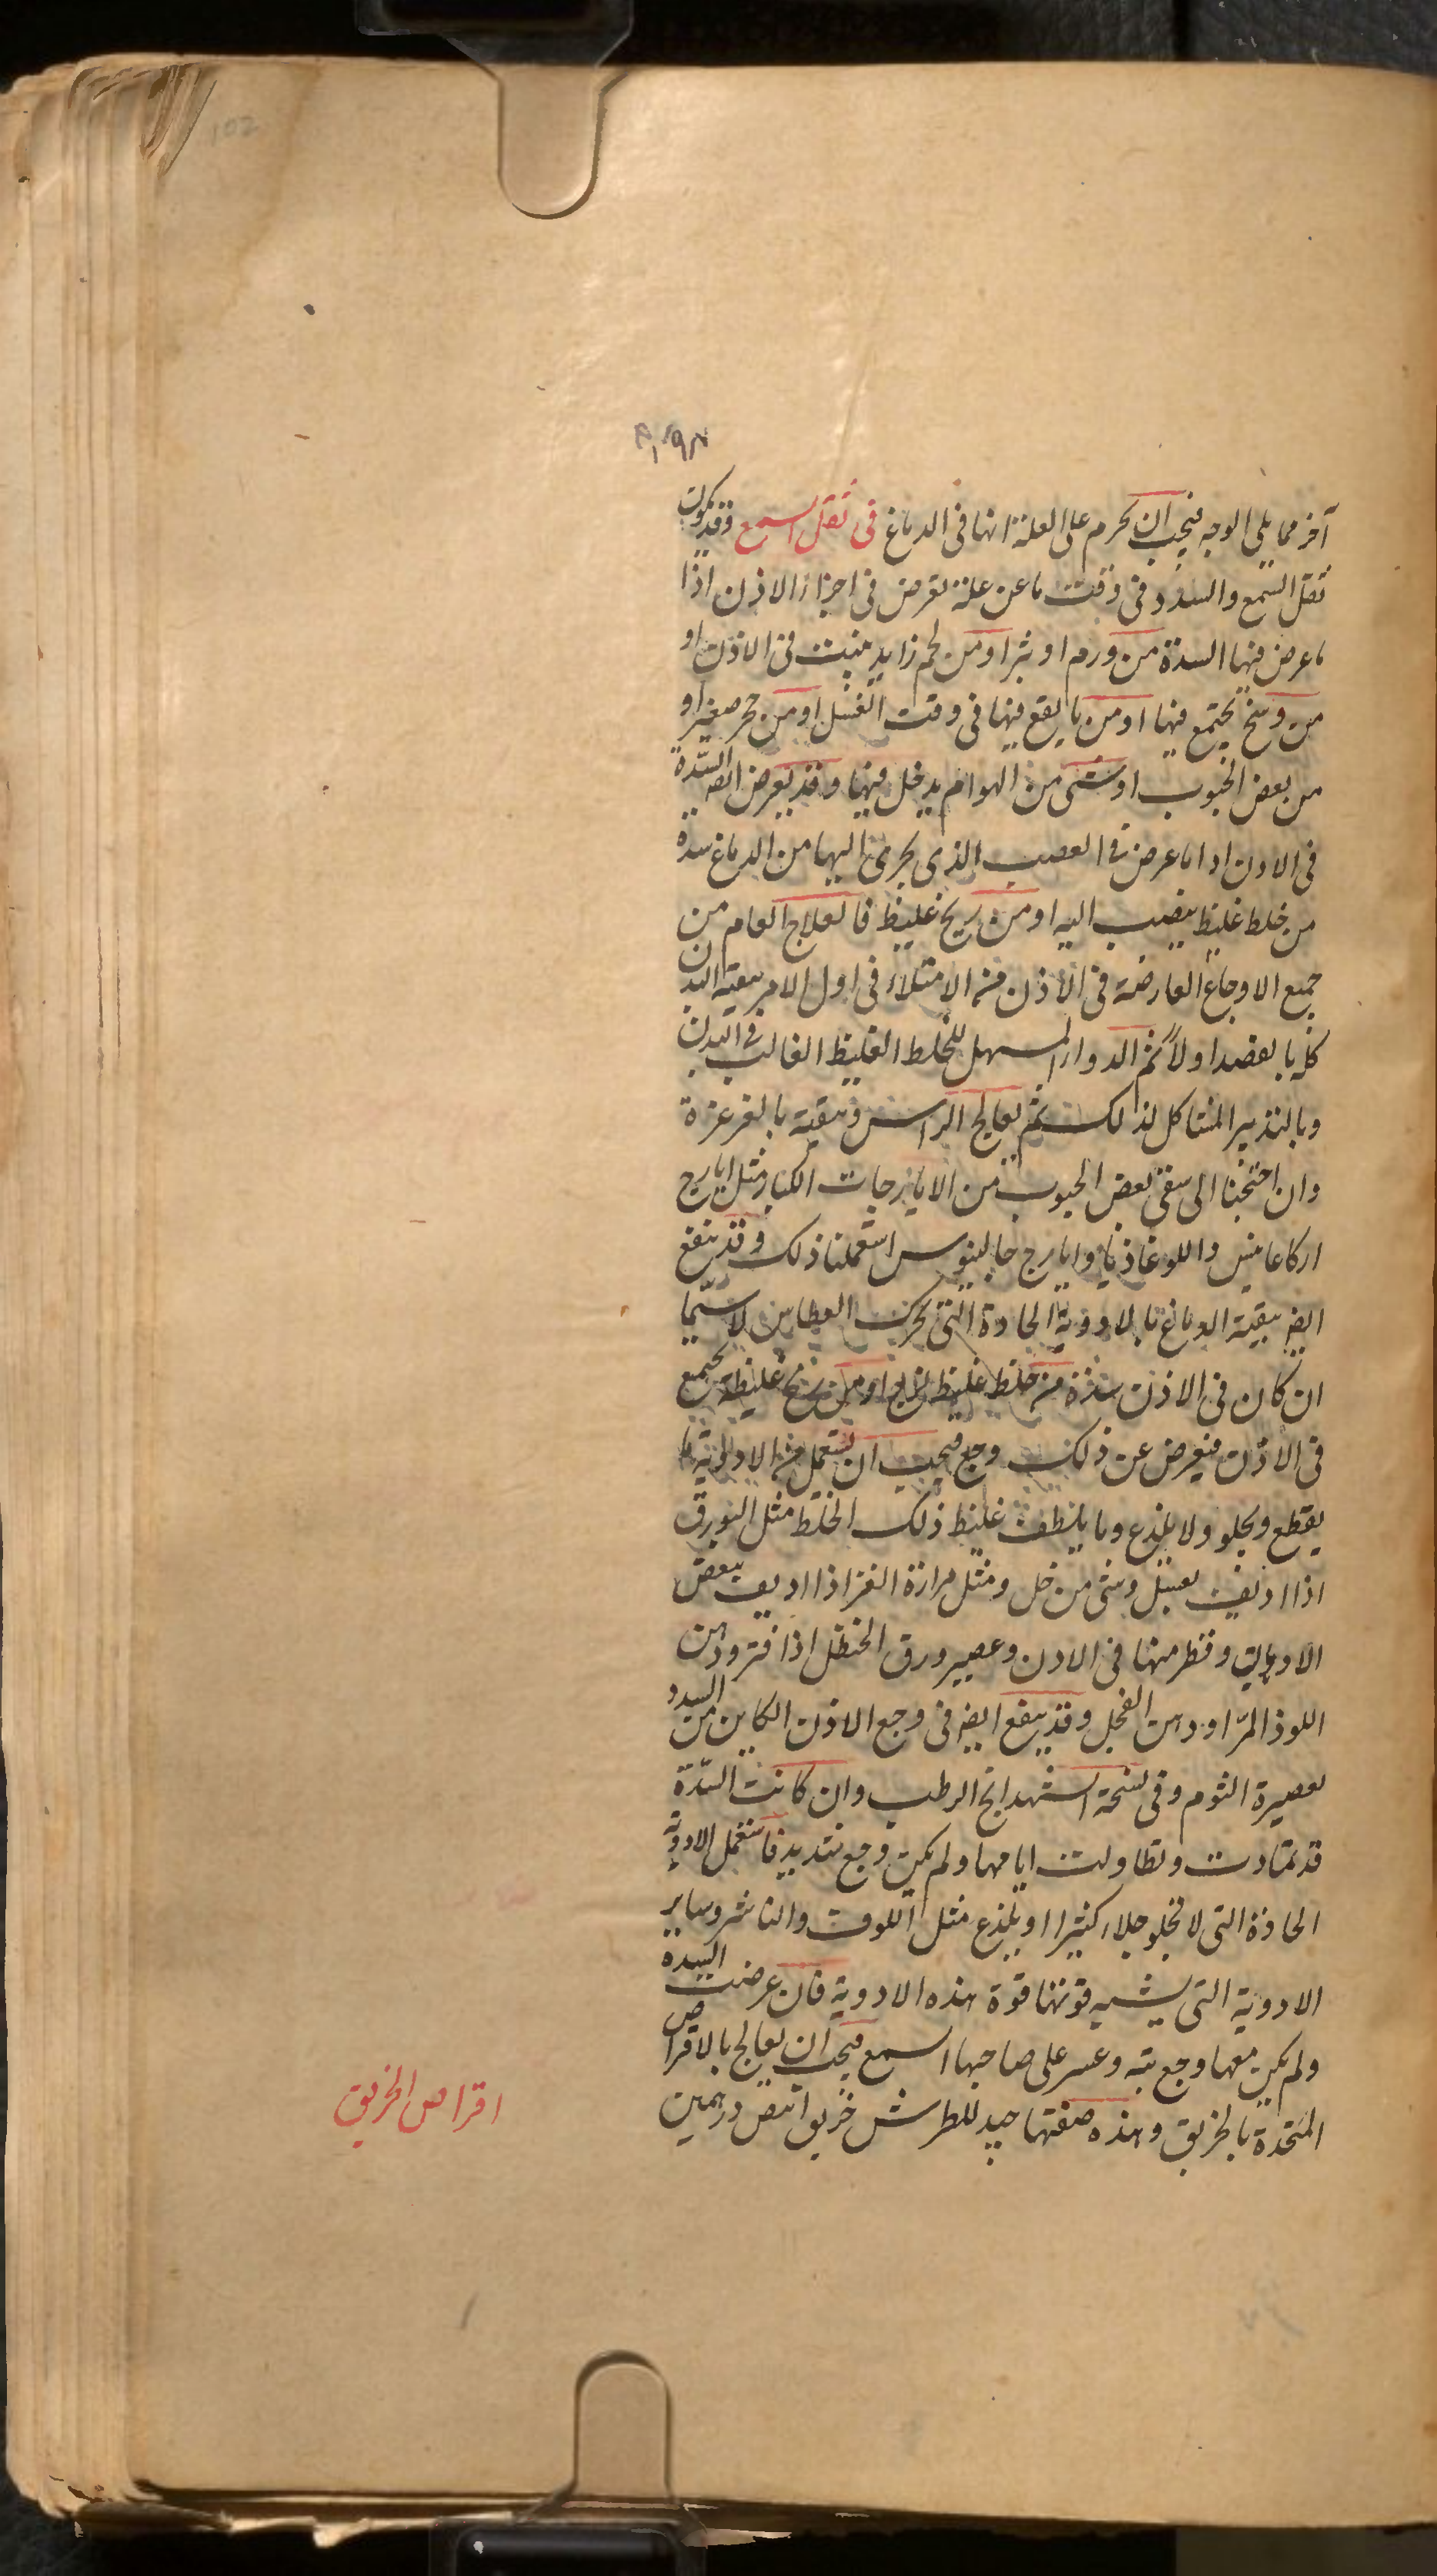 102
آخر مما يلي الوجه فيجب ان نحرم على العلة انها في الدماغ في ثقل السمع وقد يكون
ثقل السمع والسدد في وقت ما عن علة تعرض في اجزاء الاذن اذا
ما عرض فيها السدة من ورم او بثر او من لحم زايد ينبت في الاذن او
من وسخ يجتمع فيها او من ما يقع فيها في وقت الغسل او من حجر صغير او
من بعض الحبوب او شي من الهوام يدخل فيها وقد يعرض ايضا السدة
في الاذن اذا ما عرض في العصب الذي يجري اليها من الدماغ سدة
من خلط غليظ ينصب اليه او من ريح غليظ فالعلاج العام من
جميع الاوجاع العارضة في الاذن من الامتلاء في اول الامر بنقية البدن
كله بالفصد اولا ثم الدواء المسهل للخلط الغليظ الغالب في البدن
وبالتدبير المشاكل لذلك ثم يعالج الراس وتنقيه بالغرغرة
وان احتجنا الى سقي بعض الحبوب من الايارجات الكبار مثل ايارج
اركاغانيس واللوغاذيا وايارج جالينوس استعملنا ذلك وقد ينفع
ايضا بنقية الدماغ بالادوية الحادة التي تحرك العطاس لا سيما
ان كان في الاذن سدة من خلط غليظ لزج او من ريح غليظة تجتمع
في الاذن فيعرض عن ذلك وجع فيجب ان يستعمل من الادوية ما
يقطع ويجلو ولا يلذع وما يلطف غليظ ذلك الخلط مثل البورق
اذا اديف بعسل وشي من خل ومثل مرارة العنز اذا اديف ببعض
الادهان وقطر منها في الاذن وعصير ورق الحنظل اذا فتر ودهن
اللوز المر او دهن الفجل وقد ينفع ايضا في وجع الاذن الكاين من السدد
بعصيرة الثوم وفي نسخة الشهدانج الرطب وان كانت السدة
قد تمادت وتطاولت ايامها ولم يكن وجع شديد فاستعمل الادوية
الحادة التي لا تجلو جلاء كثيرا او يلذع مثل اللوف والفاشر وساير
الادوية التي يشبه قوتها قوة هذه الادوية فان عرضت السدة
ولم يكن معها وجع بتة وعسر على صاحبها السمع فيجب ان يعالج بالاقراص
المتخذة بالخربق وهذه صفتها جيد للطرش خربق ابيض درهمين
اقراص الخربق